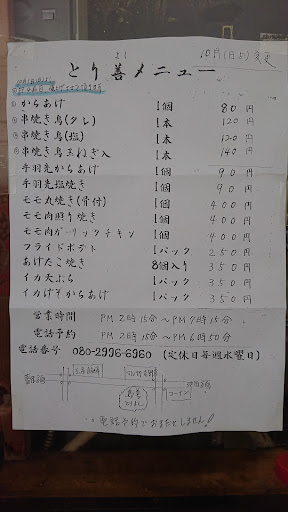 とり善メニュー
10月1日より変更
からあげ 1個 80円
串焼き鳥(タレ) 1本 120円
串焼き鳥(塩) 1本 120円
串焼き鳥玉ねぎ入 1本 140円
手羽先からあげ 1個 90円
手羽先塩焼き 1個 90円
モモ丸焼き(骨付) 1個 400円
モモ肉照り焼き 1個 400円
モモ肉ガーリックチキン 1個 400円
フライドポテト 1パック 250円
あげたこ焼き 8個入り 350円
イカ天ぷら 1パック 350円
イカげそからあげ 1パック 350円
営業時間 PM2時15分〜PM7時15分
電話予約 PM2時15分〜PM6時50分
電話番号 080-2996-6960 (定休日毎週水曜日)
電話予約でおまたせしません!